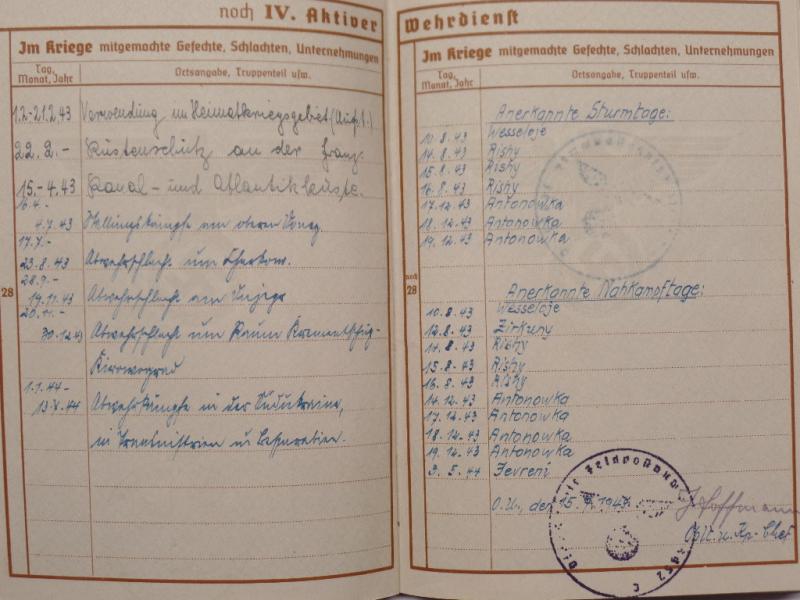 noch IV. Aktiver
Im Kriege mitgemachte Gefechte, Schlachten, Unternehmungen
Tag, Monat, Jahr
Ortsangabe, Truppenteil usw.
1.2.-21.2.43 Verwendung im Heimatkriegsgebiet
22.2.- Küstenschutz an der franz.
15.-4.43 Kanal- und Atlantikküste.
16.4.-
4.7.43 Stellungskämpfe am oberen Donez.
17.7.-
23.8.43 Abwehrschlacht um Charkow.
28.9.-
19.11.43 Abwehrschlacht am Dnjepr
20.11.-
30.12.43 Abwehrschlacht im Raum Krementschug-
Kirowograd
1.1.44-
44 Abwehrkämpfe in der Südukraine,
in Transnistrien u Bessarabien.
28
Wehrdienst
Im Kriege mitgemachte Gefechte, Schlachten, Unternehmungen
Tag, Monat, Jahr
Ortsangabe, Truppenteil usw.
Anerkannte Sturmtage:
10.8.43 Wesseloje
14.8.43 Rishy
15.8.43 Rishy
16.8.43 Rishy
17.12.43 Antonowka
18.12.43 Antonowka
19.12.43 Antonowka
noch 28
Anerkannte Nahkampftage:
10.8.43 Wesseloje
12.8.43 Zirkuny
14.8.43 Rishy
15.8.43 Rishy
16.8.43 Rishy
14.12.43 Antonowka
17.12.43 Antonowka
18.12.43 Antonowka
19.12.43 Antonowka
9.5.44 Jevreni
O.U., den 15.
Hoffmann
Oblt. u. Kp.-Chef